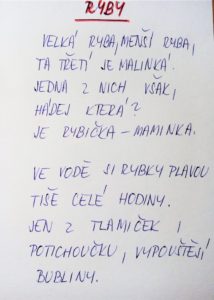 RYBY
VELKÁ RYBA, MENŠÍ RYBA,
TA TŘETÍ JE MALINKÁ.
JEDNA Z NICH VŠAK,
HÁDEJ KTERÁ?
JE RYBIČKA – MAMINKA.
VE VODĚ SI RYBKY PLAVOU
TIŠE CELÉ HODINY.
JEN Z TLAMIČEK,
POTICHOUČKU, VYPOUŠTĚJÍ
BUBLINY.